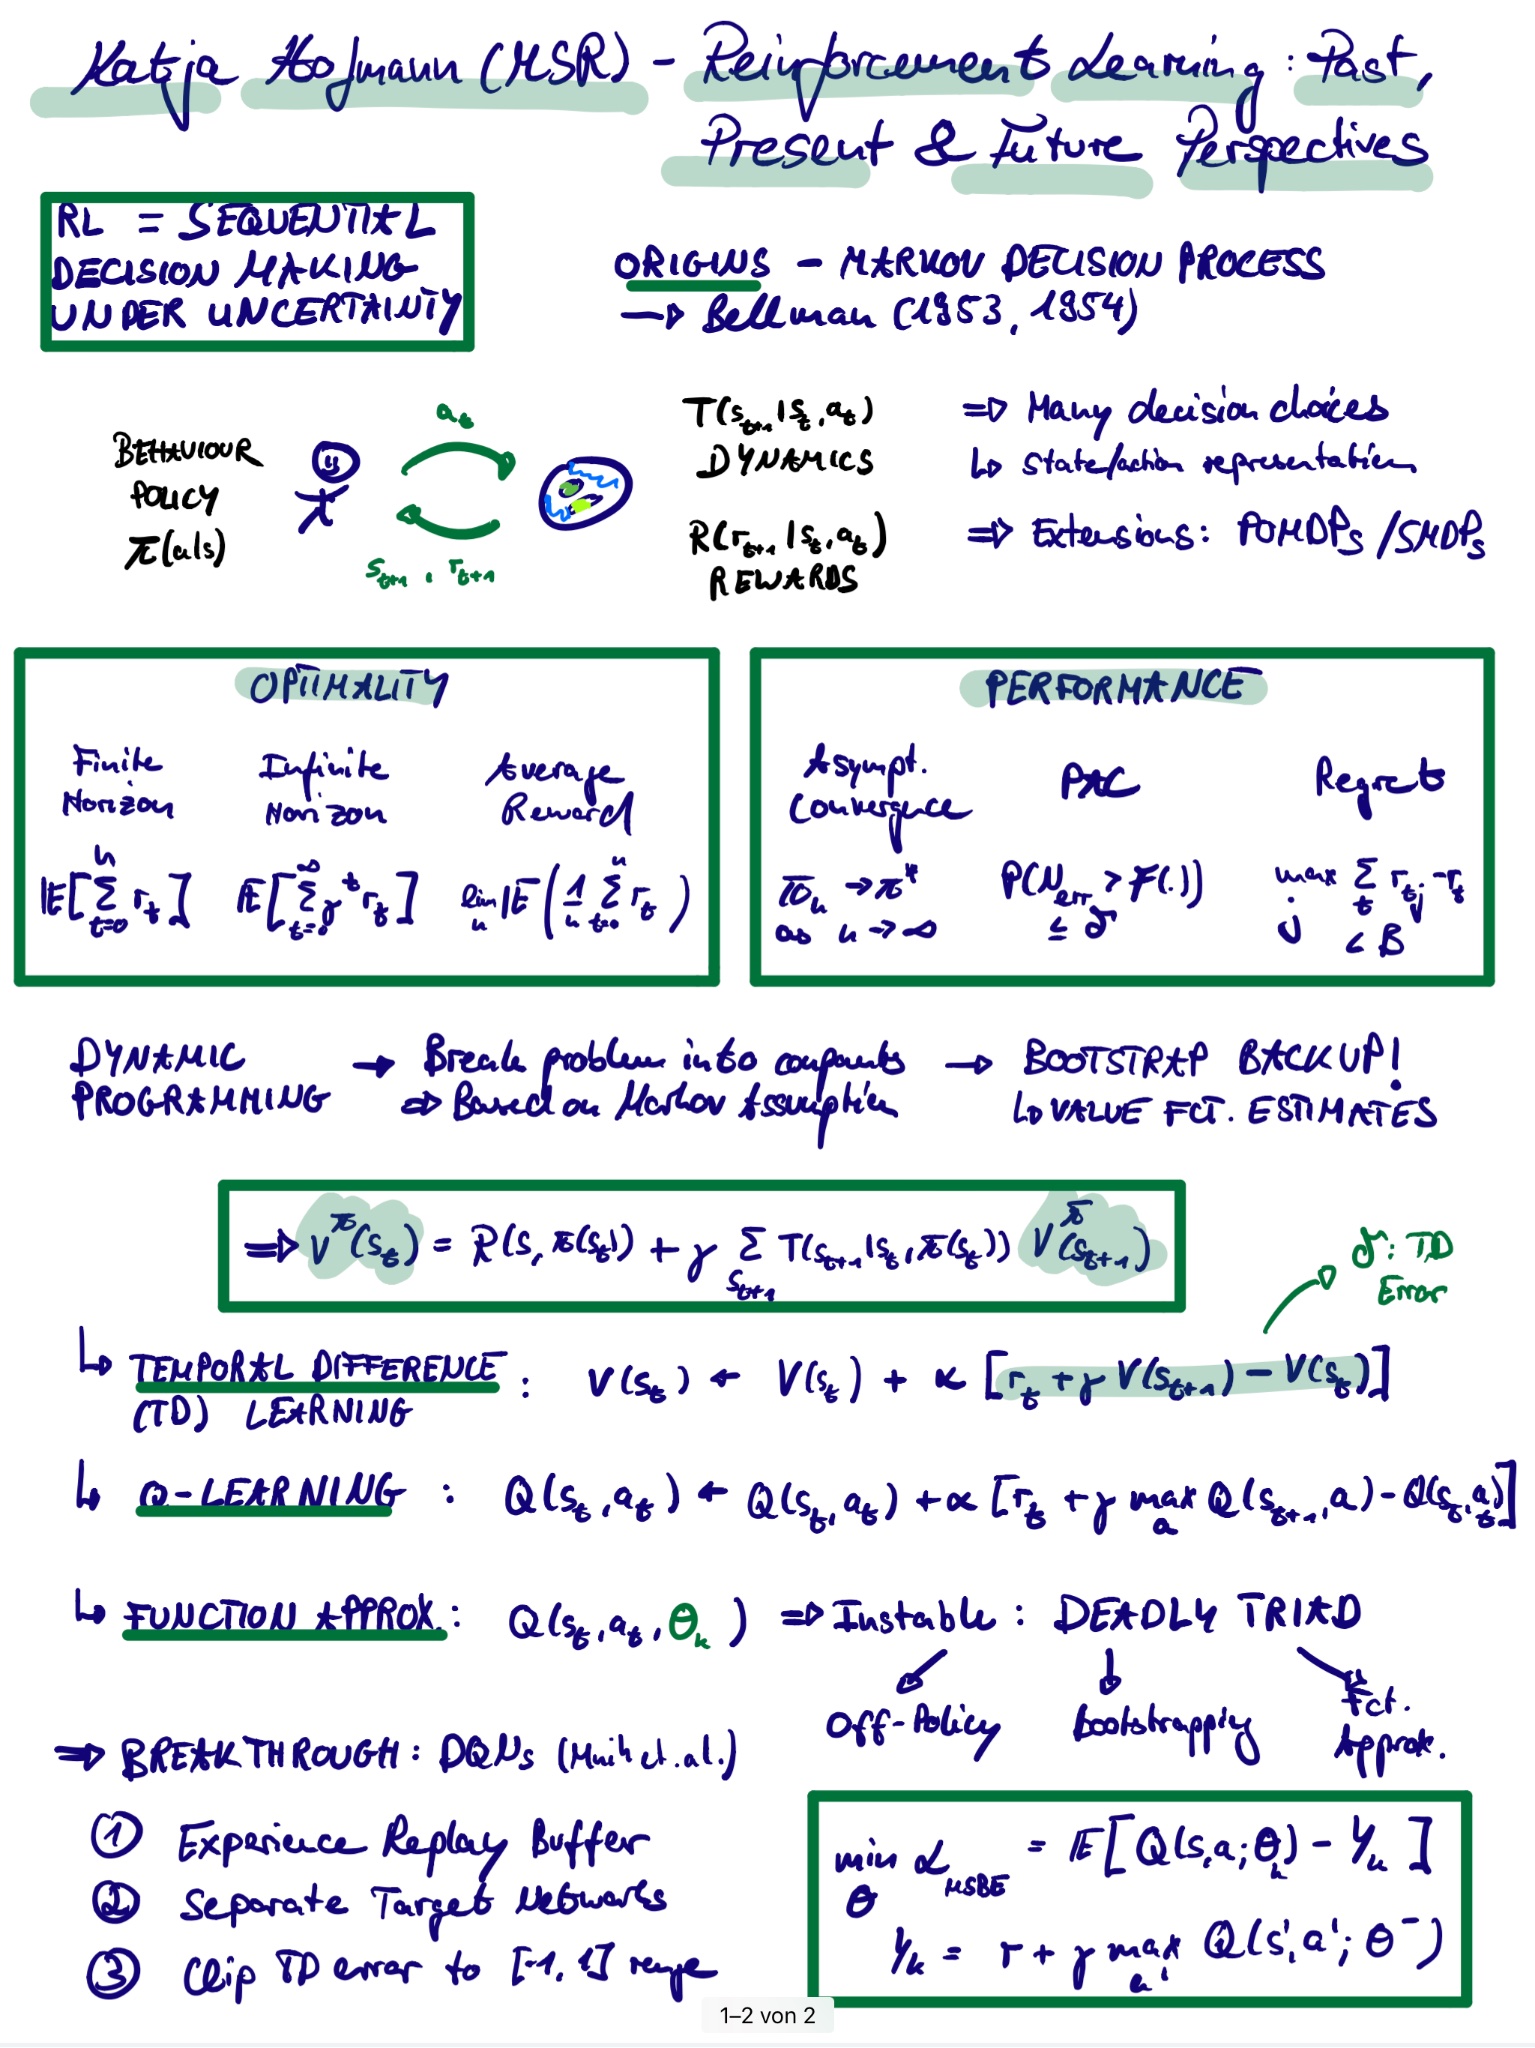 Katja Hofmann (MSR) - Reinforcement Learning: Past,
Present & Future Perspectives
RL = SEQUENTIAL
DECISION MAKING
UNDER UNCERTAINTY
ORIGINS - MARKOV DECISION PROCESS
→ Bellman (1953, 1954)
BEHAVIOUR
POLICY
π(a|s)
a_t
s_{t+1}, r_{t+1}
T(s_{t+1}|s_t, a_t)
DYNAMICS
R(r_{t+1}|s_t, a_t)
REWARDS
⇒ Many decision choices
↳ State/action representation
⇒ Extensions: POMDPs/SMDPs
OPTIMALITY
Finite
Horizon
𝔼[Σ_{t=0}^{n} r_t]
Infinite
Horizon
𝔼[Σ_{t=0}^{∞} γ^t r_t]
Average
Reward
lim_n 𝔼(1/n Σ_{t=0}^{n} r_t)
PERFORMANCE
Asympt.
Convergence
π_n → π*
as n → ∞
PAC
P(N_err > F(.))
≤ δ
Regret
max_j Σ_t r_{tj} - r_t
< B
DYNAMIC
PROGRAMMING
→ Break problem into compants
⇒ Based on Markov Assumption
→ BOOTSTRAP BACKUP!
↳ VALUE FCT. ESTIMATES
⇒ V^π(s_t) = R(s, π(s_t)) + γ Σ_{s_{t+1}} T(s_{t+1}|s_t, π(s_t)) V^π(s_{t+1})
δ: TD
Error
↳ TEMPORAL DIFFERENCE : V(s_t) ← V(s_t) + α [r_t + γ V(s_{t+1}) - V(s_t)]
(TD) LEARNING
↳ Q-LEARNING : Q(s_t, a_t) ← Q(s_t, a_t) + α [r_t + γ max_a Q(s_{t+1}, a) - Q(s_t, a_t)]
↳ FUNCTION APPROX.: Q(s_t, a_t, θ_k) ⇒ Instable: DEADLY TRIAD
Off-Policy
Bootstrapping
Fct.
Approx.
⇒ BREAKTHROUGH: DQNs (Mnih et. al.)
① Experience Replay Buffer
② Separate Target Networks
③ Clip TD error to [-1, 1] range
min_θ ℒ_MSBE = 𝔼[Q(s, a; θ_k) - Y_k]
Y_k = r + γ max_{a'} Q(s', a'; θ⁻)
1–2 von 2